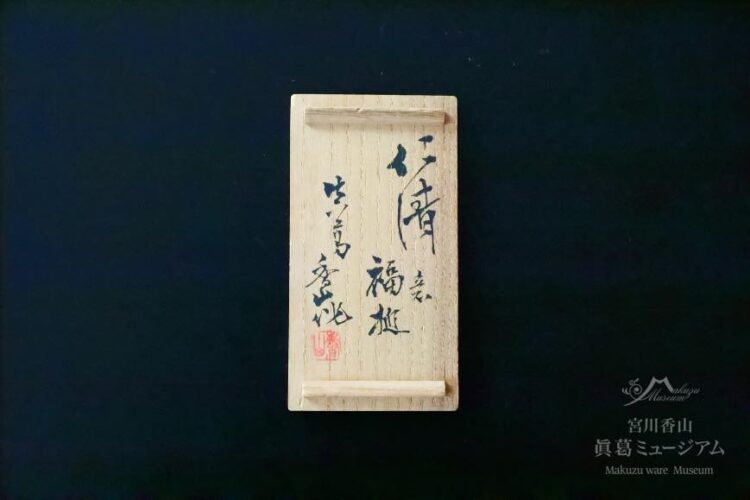 仁清
意
福槌
真葛
香山作
Makuzu
Museum
宮川香山
眞葛ミュージアム
Makuzu ware Museum